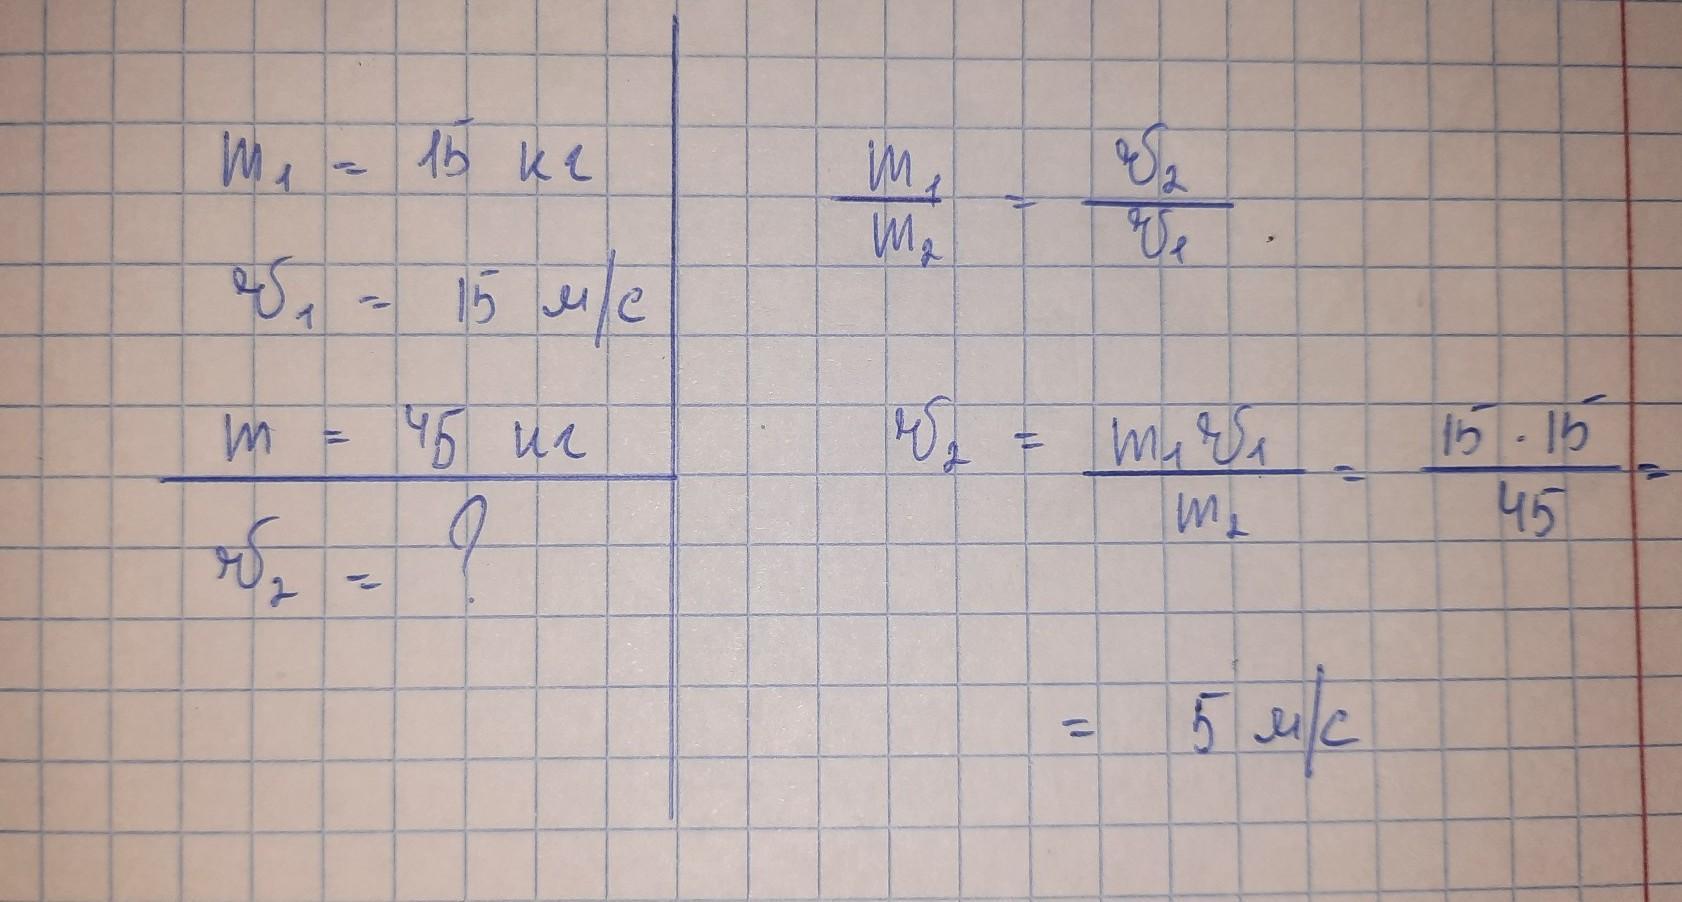 m₁ = 15 кг
υ₁ = 15 м/с
m = 45 кг
υ₂ = ?
m₁/m₂ = υ₂/υ₁
υ₂ = m₁υ₁/m₂ = 15 · 15/45 =
= 5 м/с